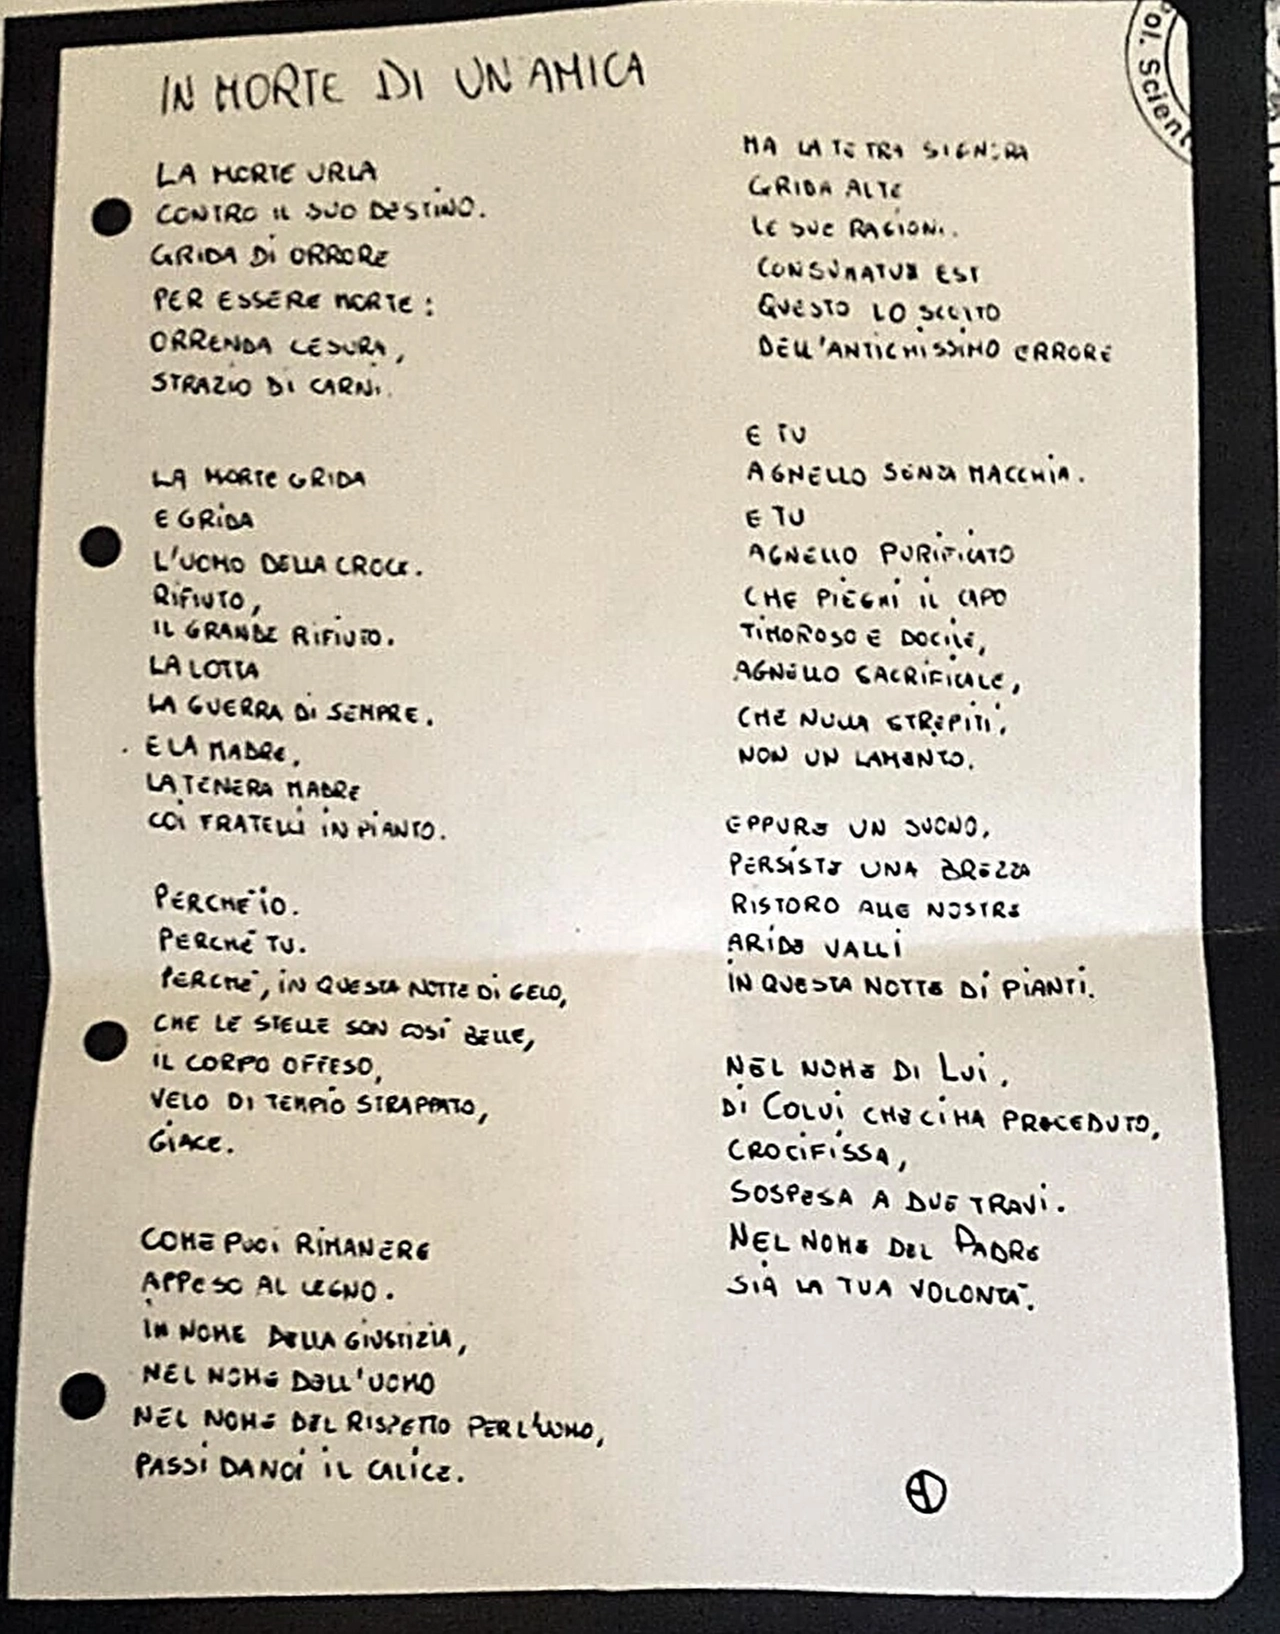 IN MORTE DI UN'AMICA
LA MORTE URLA
CONTRO IL SUO DESTINO.
GRIDA DI ORRORE
PER ESSERE MORTE:
ORRENDA CESURA,
STRAZIO DI CARNI.
LA MORTE GRIDA
E GRIDA
L'UOMO DELLA CROCE.
RIFIUTO,
IL GRANDE RIFIUTO.
LA LOTTA
LA GUERRA DI SEMPRE.
E LA MADRE,
LA TENERA MADRE
COI FRATELLI IN PIANTO.
PERCHÉ IO.
PERCHÉ TU.
PERCHÉ, IN QUESTA NOTTE DI GELO,
CHE LE STELLE SON COSÌ BELLE,
IL CORPO OFFESO,
VELO DI TEMPIO STRAPPATO,
GIACE.
COME PUOI RIMANERE
APPESO AL LEGNO.
IN NOME DELLA GIUSTIZIA,
NEL NOME DELL'UOMO
NEL NOME DEL RISPETTO PER L'UOMO,
PASSI DA NOI IL CALICE.
MA LA TETRA SIGNORA
GRIDA ALTE
LE SUE RAGIONI.
CONSUMATUM EST
QUESTO LO SCOTTO
DELL'ANTICHISSIMO ERRORE
E TU
AGNELLO SENZA MACCHIA.
E TU
AGNELLO PURIFICATO
CHE PIEGHI IL CAPO
TIMOROSO E DOCILE,
AGNELLO SACRIFICALE,
CHE NULLA STREPITI,
NON UN LAMENTO.
EPPURE UN SUONO,
PERSISTE UNA BREZZA
RISTORO ALLE NOSTRE
ARIDE VALLI
IN QUESTA NOTTE DI PIANTI.
NEL NOME DI LUI,
DI COLUI CHE CI HA PRECEDUTO,
CROCIFISSA,
SOSPESA A DUE TRAVI.
NEL NOME DEL PADRE
SIA LA TUA VOLONTÀ.
Pol. Scient